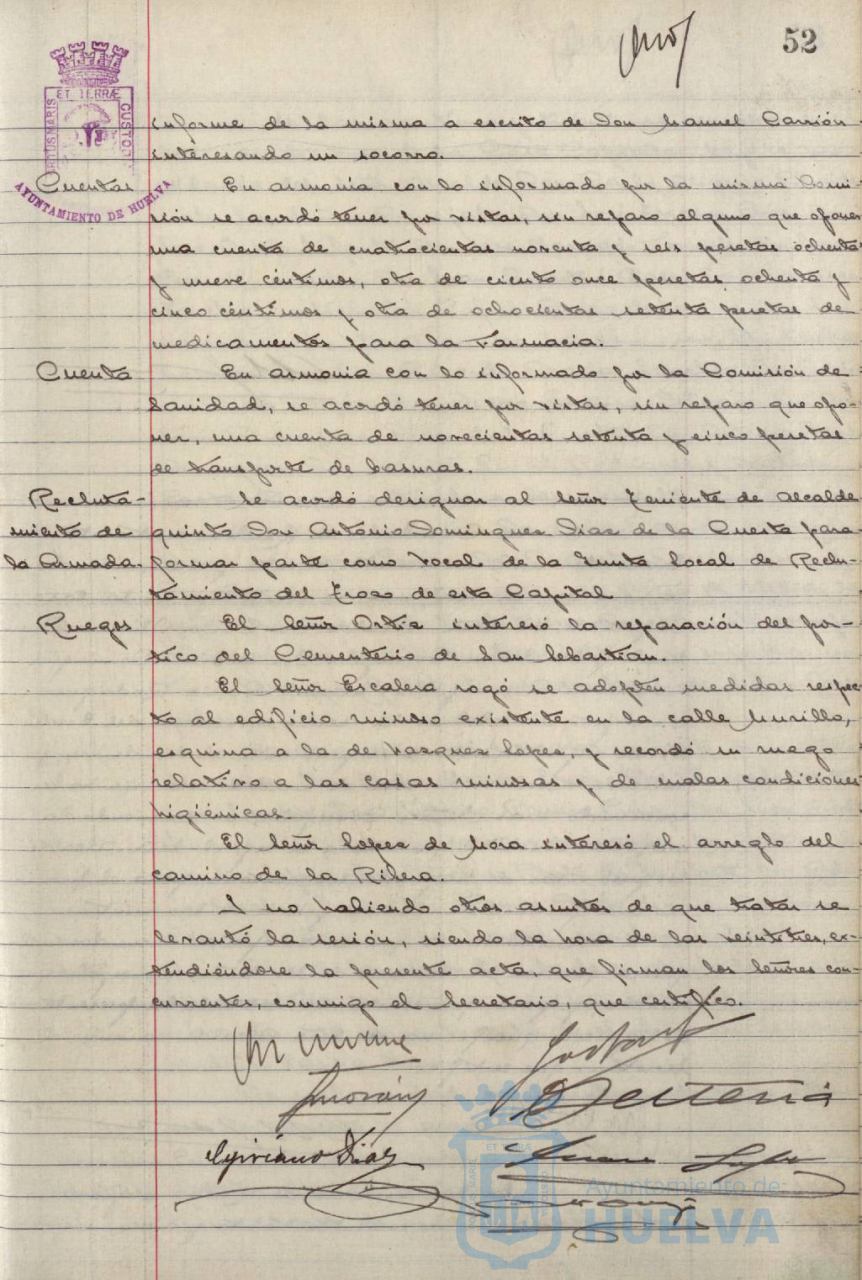 52
ET TERRÆ
CUSTODI
AYUNTAMIENTO DE HUELVA
informe de la misma a escrito de Don Manuel Carrión
interesando un socorro.
Cuentas En armonía con lo informado por la misma Comi-
sión se acordó tener por vistas, sin reparo alguno que oponer
una cuenta de cuatrocientas noventa y seis pesetas ochenta
y nueve céntimos, otra de ciento once pesetas ochenta y
cinco céntimos y otra de ochocientas setenta pesetas de
medicamentos para la Farmacia.
Cuenta En armonía con lo informado por la Comisión de
Sanidad, se acordó tener por vistas, sin reparo que opo-
ner, una cuenta de novecientas setenta y cinco pesetas
de transporte de basuras.
Recluta- Se acordó designar al Señor Teniente de Alcalde
miento de quinto Don Antonio Dominguez Diaz de la Cuesta para
la Armada. formar parte como Vocal de la Junta local de Reclu-
tamiento del Trozo de esta Capital
Ruegos El Señor Ortiz interesó la reparación del pór-
tico del Cementerio de San Sebastián.
El Señor Escalera rogó se adopten medidas respec-
to al edificio ruinoso existente en la calle Murillo,
esquina a la de Vazquez Lopez, y recordó su ruego
relativo a las casas ruinosas y de malas condiciones
higiénicas.
El Señor Lopez de Mora interesó el arreglo del
camino de la Ribera.
Y no habiendo otros asuntos de que tratar se
levantó la sesión, siendo la hora de las veintitres, ex-
tendiéndose la presente acta, que firman los Señores con-
currentes, conmigo el Secretario, que certifico.
Cipriano Diaz
Ayuntamiento de
HUELVA